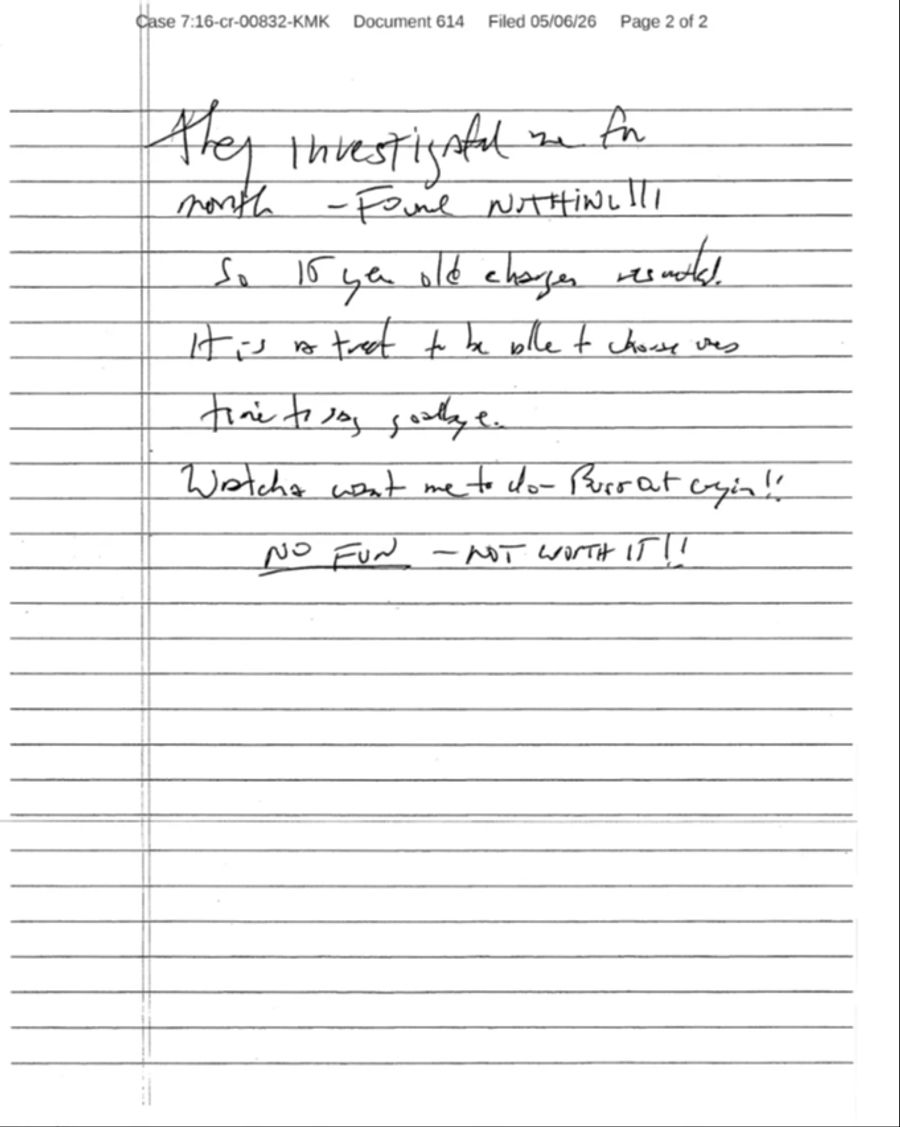 Case 7:16-cr-00832-KMK Document 614 Filed 05/06/26 Page 2 of 2
They investigated me for
month - Found NOTHING!!!
So 15 year old charges resulted.
It is a treat to be able to choose ones
time to say goodbye.
Watcha want me to do - Burst out cryin!!
NO FUN - NOT WORTH IT!!